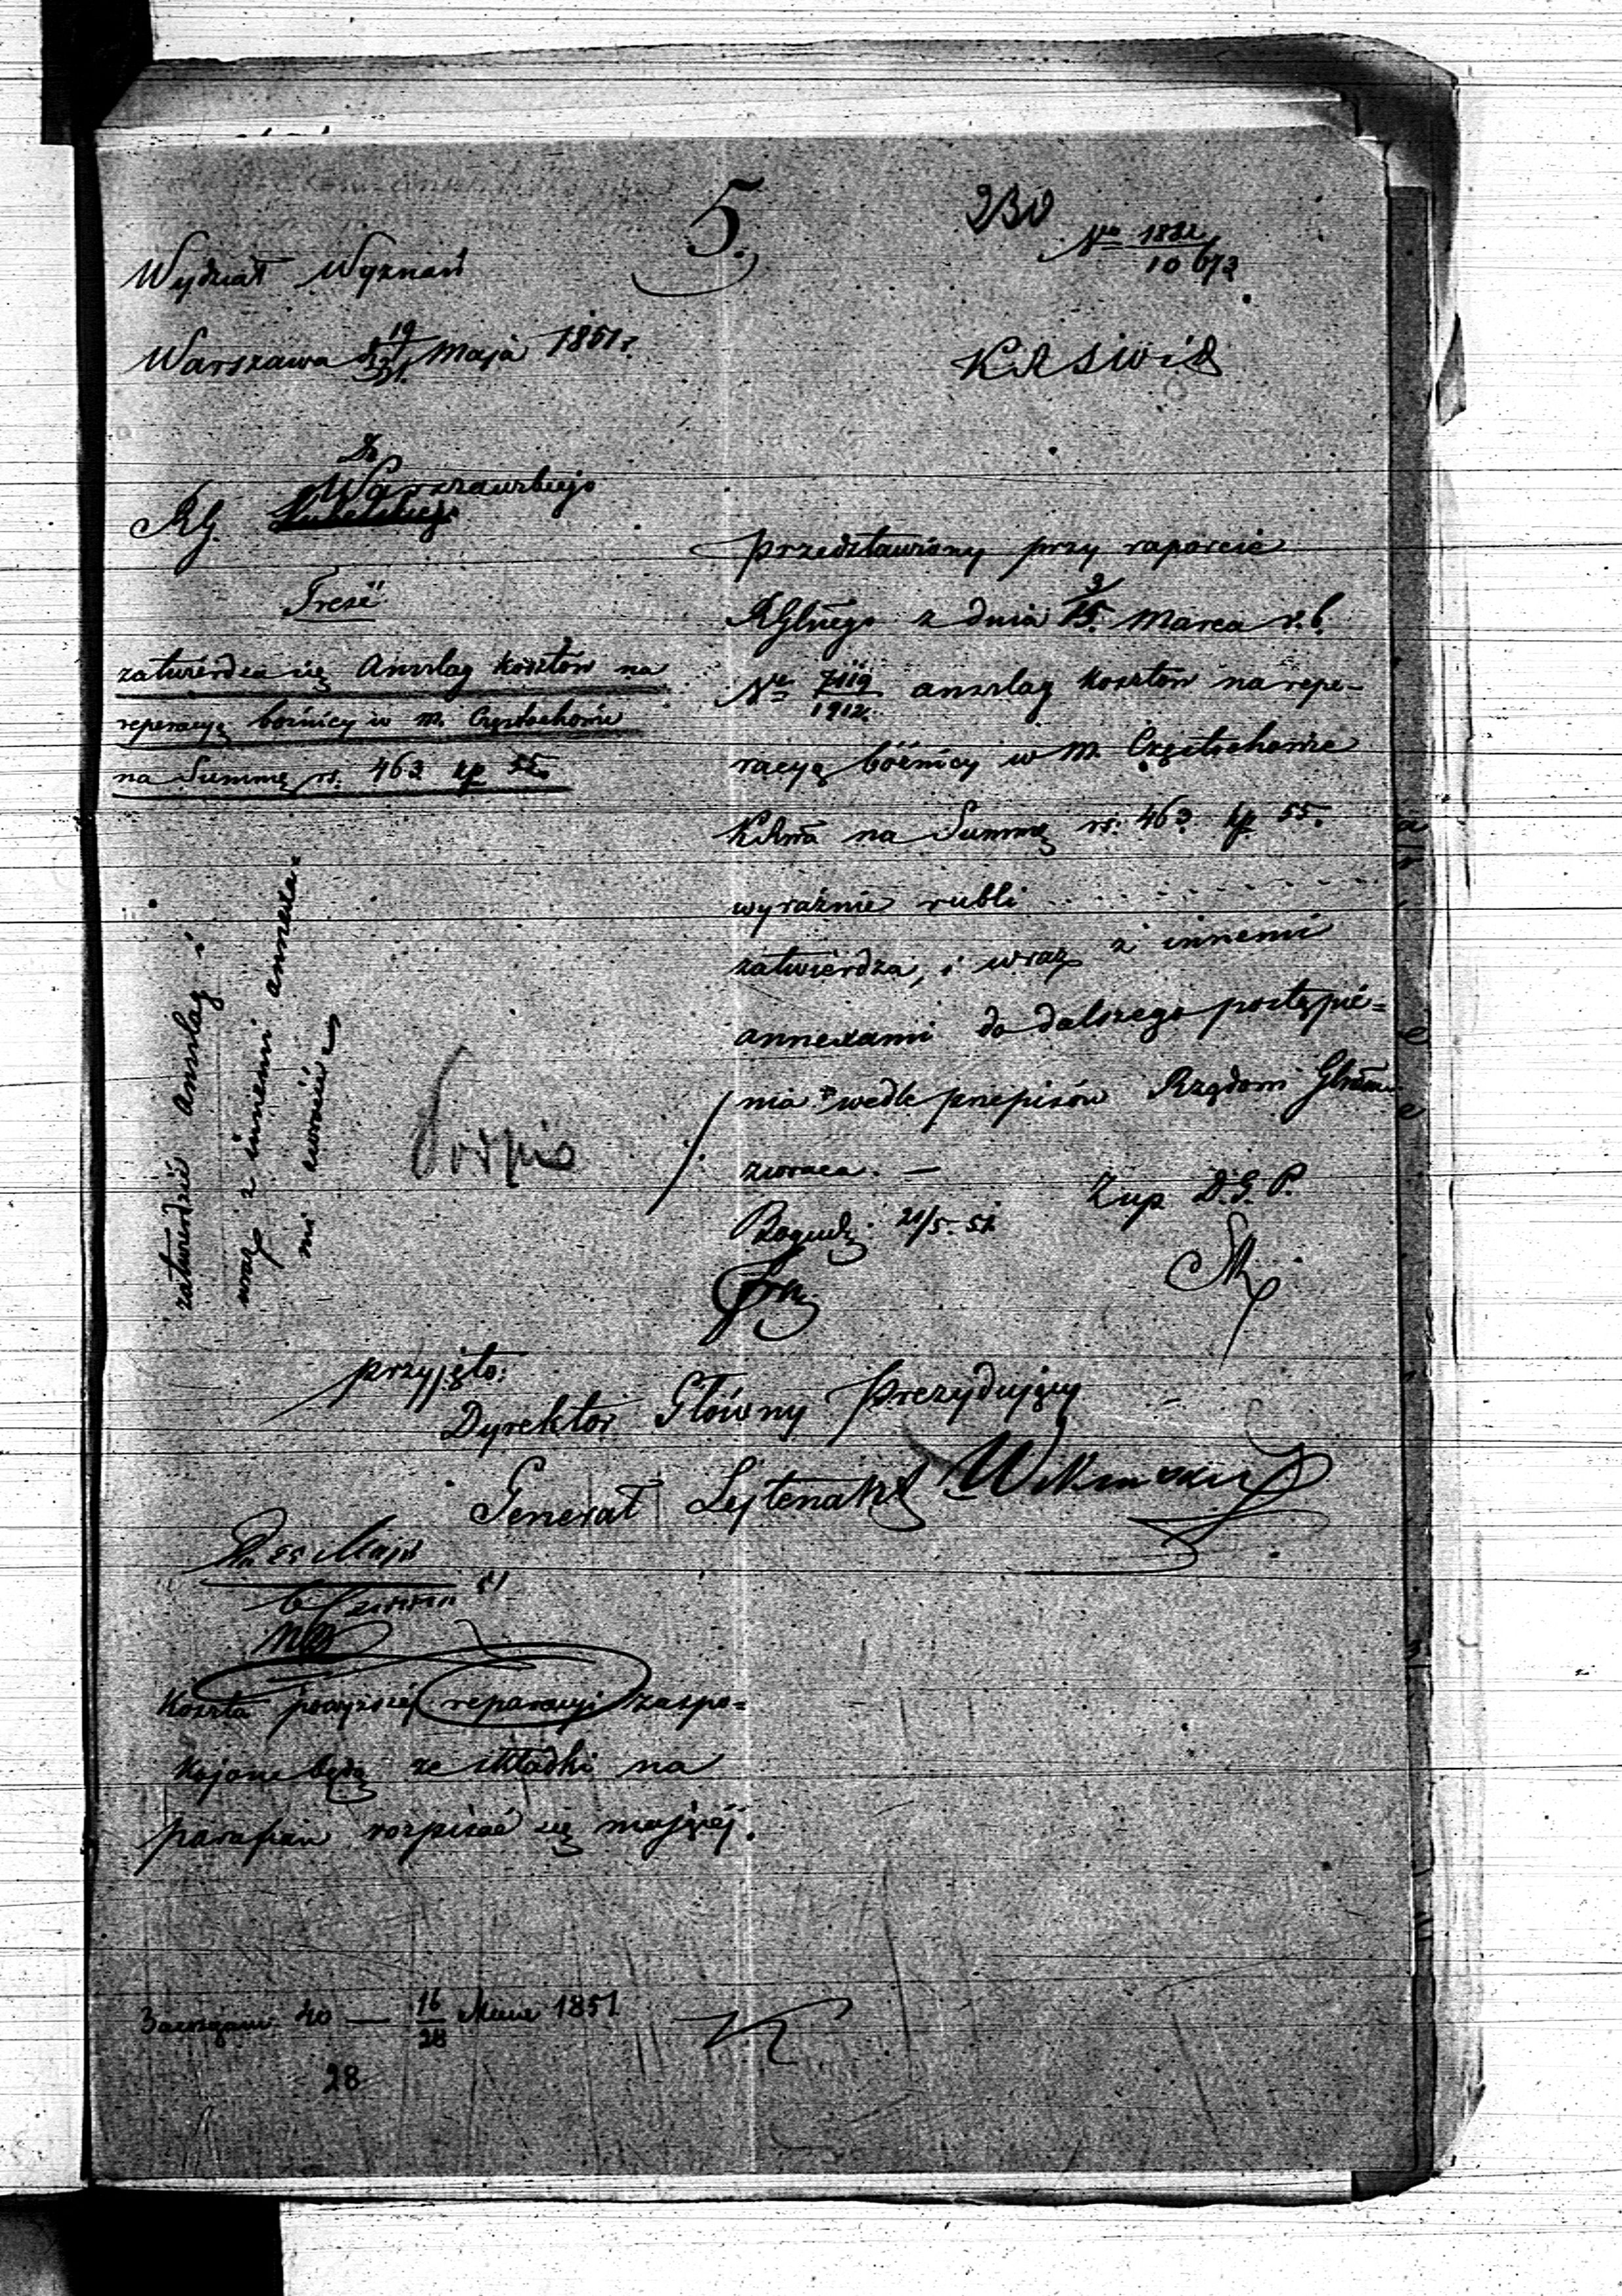 5.
230
No 1822/10673
Wydział Wyznań
Warszawa 19/31 Maja 1851 r.
KRSWiD
Do
Warszawskiego
RG.
Treść
zatwierdza się Anszlag kosztów na
reperacyą bożnicy w m. Częstochowie
na Summę rs. 463 kp 55.
Przedstawiony przy raporcie
RGlnego z dnia 3/15 Marca r. b.
No 7119/1912 anszlag kosztów na repe-
racyą bóżnicy w M. Częstochowie
KRzta na Summę rs. 463. kp 55.
wyraźnie rubli
zatwierdza, i wraz z innemi
annexami do dalszego postąpie=
nia wedle przepisów Rządowi Glnemu
zwraca. —
zatwierdzić anszlag i
wraz z innemi annexa-
mi zwrócić
21/5. 51
Zup D. G. P.
przyjęto:
Dyrektor Główny Prezydujący
Generał Lejtenant
Maja
Koszta powyższej reparacyi zaspo=
kojone będą ze składki na
parafian rozpisać się mającej.
40 — 16/28 1851
28